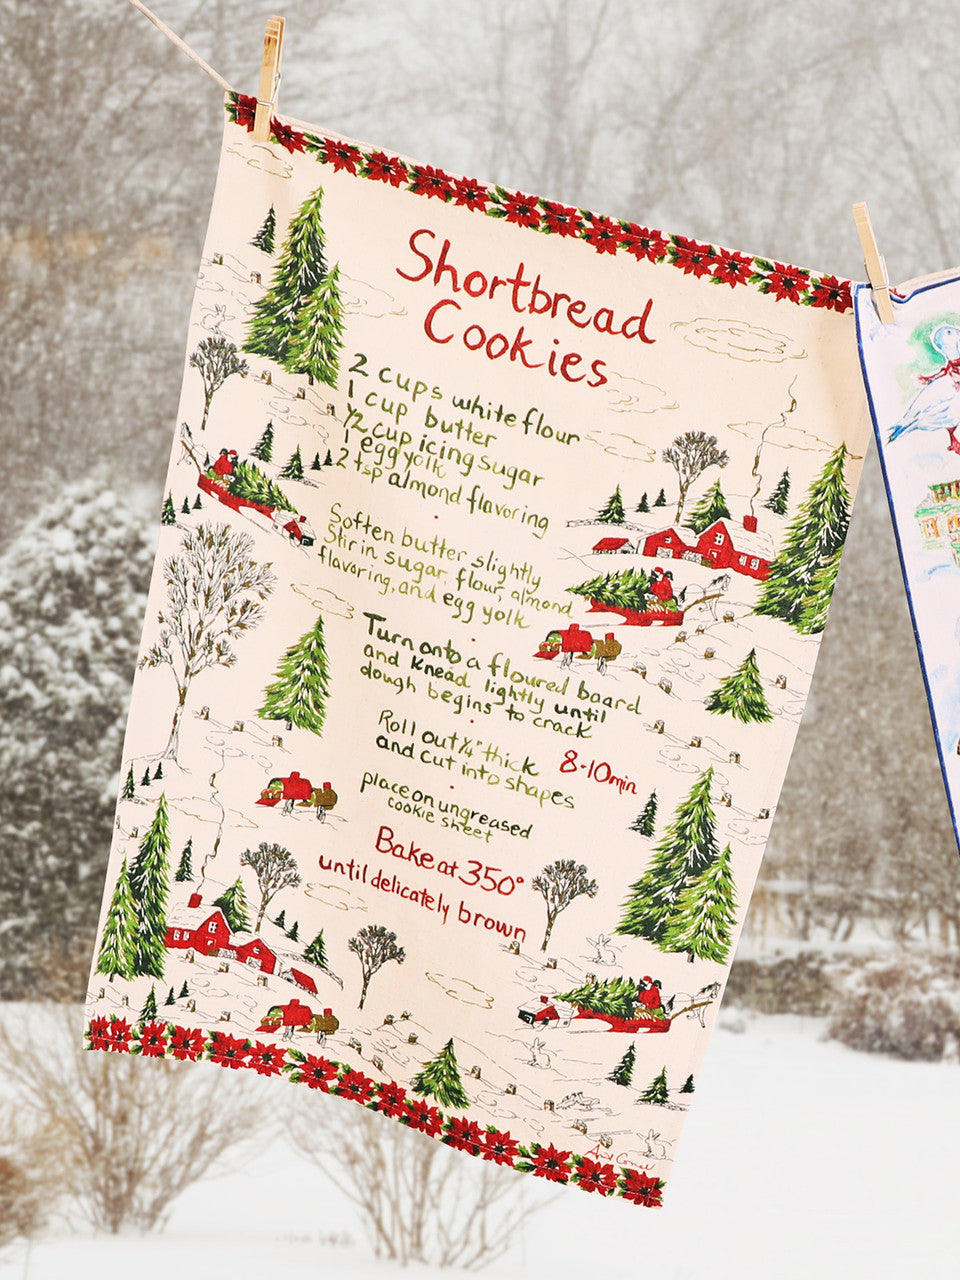 Shortbread
Cookies
2 cups white flour
1 cup butter
1/2 cup icing sugar
1 egg yolk
2 tsp almond flavoring
Soften butter slightly
Stir in sugar, flour, almond
flavoring, and egg yolk
Turn onto a floured board
and knead lightly until
dough begins to crack
Roll out 1/4" thick
and cut into shapes
8-10 min
place on ungreased
cookie sheet
Bake at 350°
until delicately brown